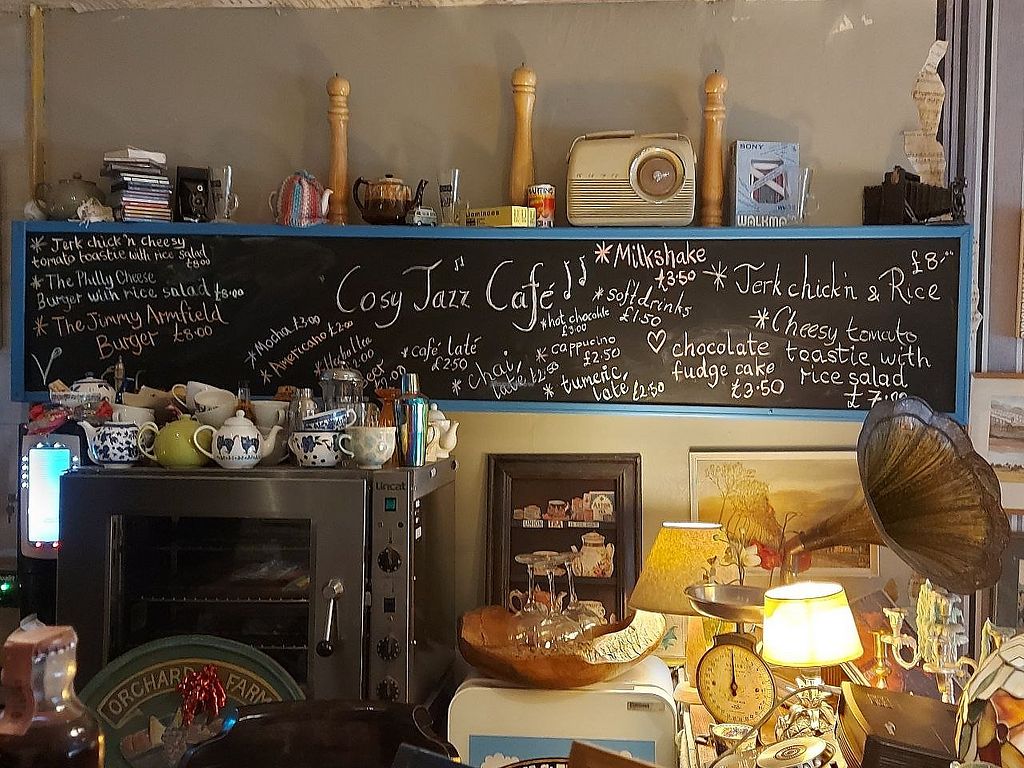 * Jerk chick'n cheesy
tomato toastie with rice salad
£8.00
* The Philly Cheese
Burger with rice salad £8.00
* The Jimmy Armfield
Burger £8.00
V
Cosy Jazz Café
* Mocha £3.00
* Americano £2.00
* café laté
£2.50
* chai
late £2.50
* hot chocolate
£3.00
* cappucino
£2.50
* tumeric
late £2.50
* Milkshake
£3.50
* soft drinks
£1.50
♡ chocolate
fudge cake
£3.50
* Jerk chick'n & Rice
£8.00
* Cheesy tomato
toastie with
rice salad
£7.00
SONY
WALKMAN
Dominoes
Lincat
UNION
TEA
ORCHARD FARM